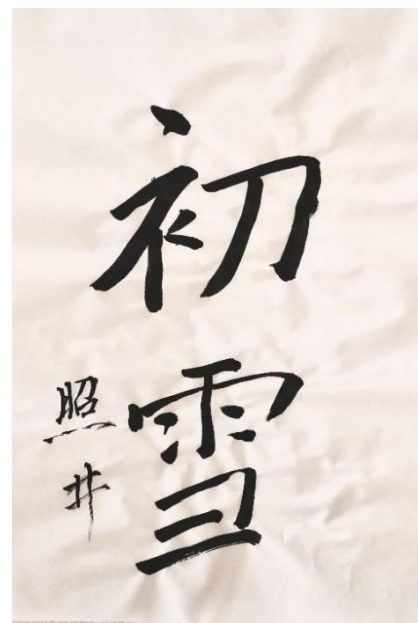 初雪
照井